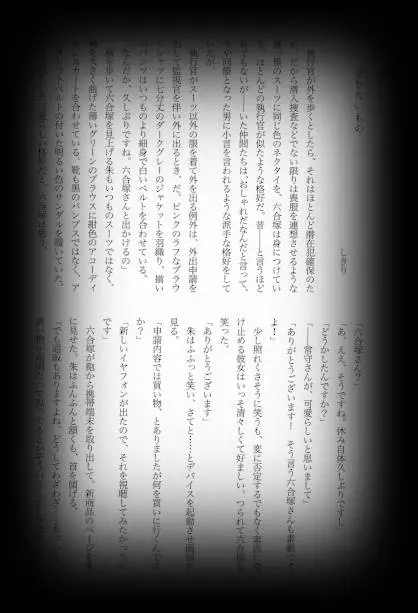 しきり
執行官が外を歩くとしたら、それはほとんど潜在犯確保のた
だから潜入捜査などでない限りは喪服を連想させるような
黒のスーツに同じ色のネクタイを、六合塚は身につけてい
ほとんどの執行官が似たような格好だ。昔――と言うほど
もないが――いた仲間たちは、おしゃれだなんだと言って、
や同僚となった男に小言を言われるような派手な格好をして
執行官がスーツ以外の服を着て外を出る例外は、外出申請を
して監視官を伴い外に出るとき、だ。ピンクのラフなブラウ
シャツに七分丈のダークグレーのジャケットを羽織り、揃い
パンツはいつものより細身で白いベルトを合わせている。
なんだか、久しぶりですね。六合塚さんと出かけるの」
横を歩いて六合塚を見上げる朱もいつものスーツではなく、
を大きく曲げた薄いグリーンのブラウスに紺色のアコーディ
スカートを合わせている。靴も黒のパンプスではなく、ア
ベルトの付いた明るい色のサンダルを履いていた。
「六合塚さん？」
「あ、ええ、そうですね。休み自体久しぶりですし」
「どうかしたんですか？」
「――常守さんが、可愛らしいと思いまして」
「ありがとうございます！　そう言う六合塚さんも素敵で
よ！」
少し照れくさそうに笑うも、変に否定するでもなく素直に受
け止める彼女はいっそ清々しくて好ましい。つられて六合塚も
笑った。
「ありがとうございます」
朱はふふっと笑い、さてと……とデバイスを起動させ画面を
見る。
「申請内容では買い物、とありましたが何を買いに行くんです
か？」
「新しいイヤフォンが出たので、それを視聴してみたかった
です」
六合塚が鞄から携帯端末を取り出して、新商品のページを
に見せた。朱はふんふんと頷くも、首を傾げる。
「でも通販もありますよね、どうしてわざわざ